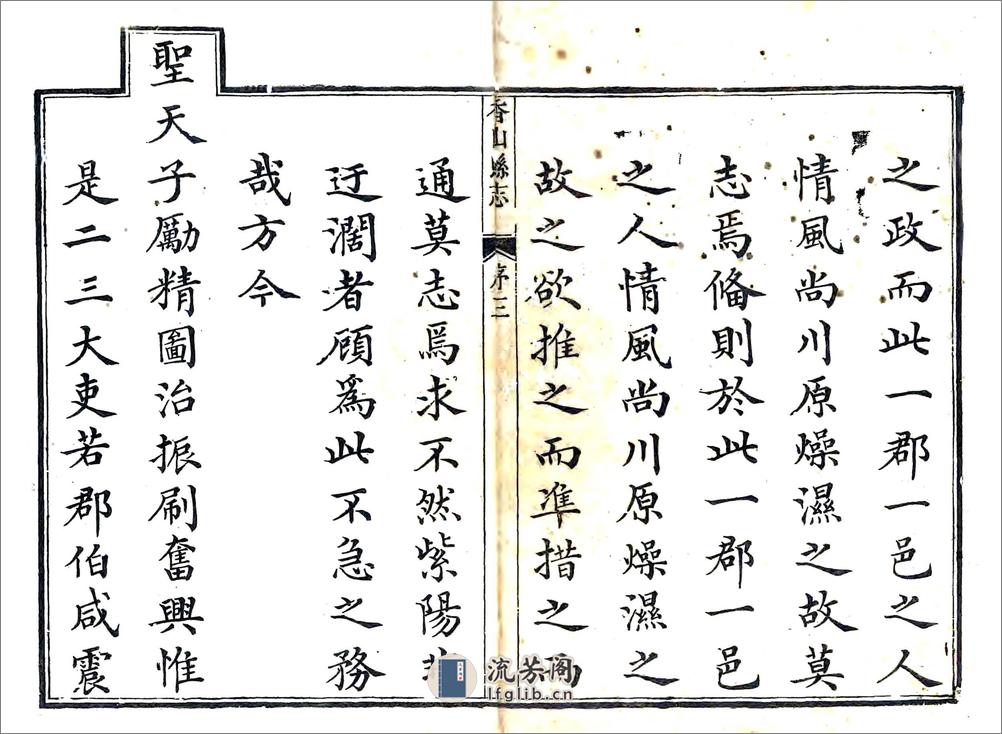 之政而此一郡一邑之人
情風尚川原燥濕之故莫
志焉俻則於此一郡一邑
之人情風尚川原燥濕之
故之欲推之而準措之
香山縣志
序三
通莫志焉求不然紫陽
迂濶者顧為此不急之務
哉方今
聖天子勵精圖治振刷奮興惟
是二三大吏若郡伯咸震
流芳阁
lfglib.cn